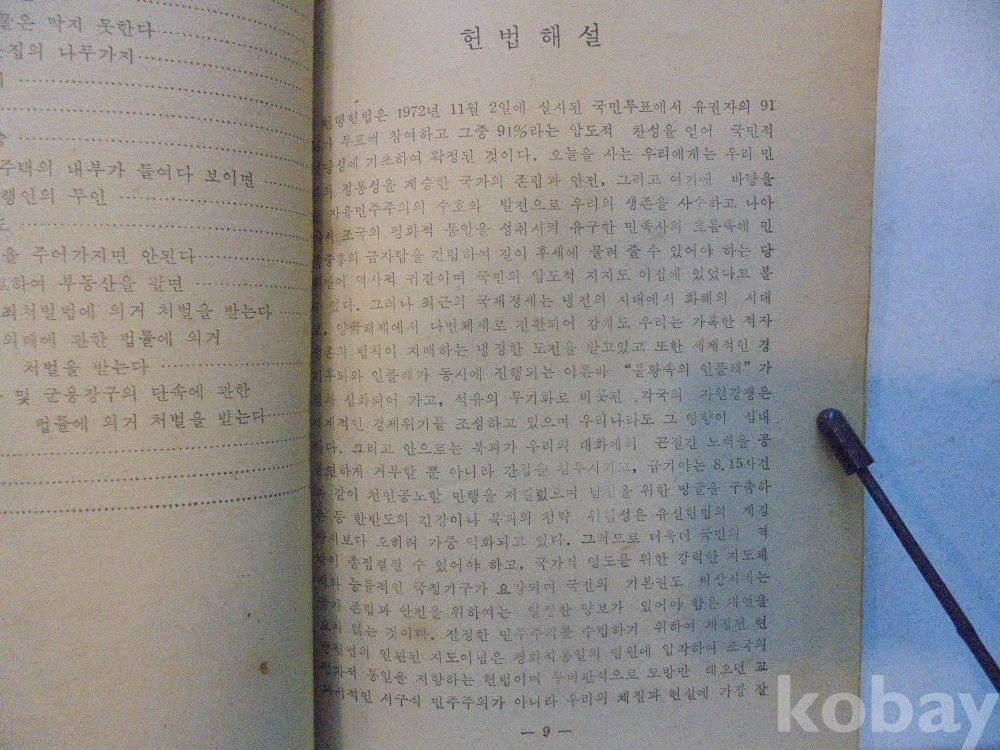 막지 못한다
집의 나무가지
주택의 내부가 들여다 보이면
행인의 무인
을 주어가지면 안된다
하여 부동산을 팔면
죄처벌법에 의거 처벌을 받는다
의례에 관한 법률에 의거
처벌을 받는다
및 군용장구의 단속에 관한
법률에 의거 처벌을 받는다
헌법해설
현행헌법은 1972년 11월 2일에 실시된 국민투표에서 유권자의 91
가 투표에 참여하고 그중 91%라는 압도적 찬성을 얻어 국민적
당성에 기초하여 확정된 것이다. 오늘을 사는 우리에게는 우리 민
의 정통성을 계승한 국가의 존립과 안전, 그리고 여기에 바탕을
자유민주주의의 수호와 발전으로 우리의 생존을 사수하고 나아
서 조국의 평화적 통일을 성취시켜 유구한 민족사의 흐름속에 민
중흥의 금자탑을 건립하여 길이 후세에 물려 줄 수 있어야 하는 당
역사적 귀결이며 국민의 압도적 지지도 이점에 있었다고 볼
있다. 그러나 최근의 국제정세는 냉전의 시대에서 화해의 시대
양극체제에서 다변체제로 전환되어 감에도 우리는 가혹한 적자
존의 법칙이 지배하는 냉정한 도전을 받고있고 또한 세계적인 경
후퇴와 인플레가 동시에 진행되는 이른바 “불황속의 인플레”가
차 심화되어 가고, 석유의 무기화로 비롯된 각국의 자원경쟁은
계적인 경제위기를 조성하고 있으며 우리나라도 그 영향이 심대
다. 그리고 안으로는 북괴가 우리의 대화에의 끈질긴 노력을 공
연하게 거부할 뿐 아니라 간첩을 침투시키고, 급기야는 8.15사건
과 같이 천인공노할 만행을 저질렀으며 남침을 위한 땅굴을 구축하
는 등 한반도의 긴장이나 북괴의 침략 위험성은 유신헌법의 제정
당시보다 오히려 가중 악화되고 있다. 그러므로 더욱더 국민의 역
이 총집결될 수 있어야 하고, 국가적 영도를 위한 강력한 지도체
제와 능률적인 국정기구가 요망되며 국민의 기본권도 비상시에는
국가 존립과 안전을 위하여는 일정한 양보가 있어야 함은 재언을
요치 않는 것이다. 진정한 민주주의를 수립하기 위하여 제정된 현
행헌법의 일관된 지도이념은 평화적통일의 염원에 입각하여 조국의
평화적 통일을 지향하는 헌법이며 무비판적으로 모방만 해오던 교
과서적인 서구식 민주주의가 아니라 우리의 체질과 현실에 가장 잘
— 9 —
kobay